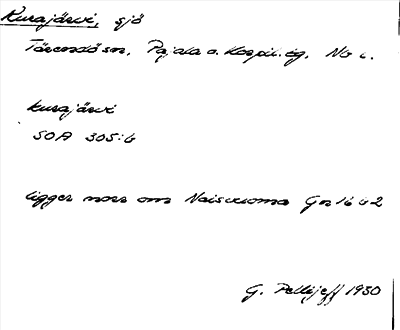 Kurajärvi, sjö
Tärendö sn, Pajala o. Korpil. tg, Nb l.
kurajärvi
SOA 305:6
ligger norr om Naisvuoma Gn 16 b 2
G. Pellijeff 1980